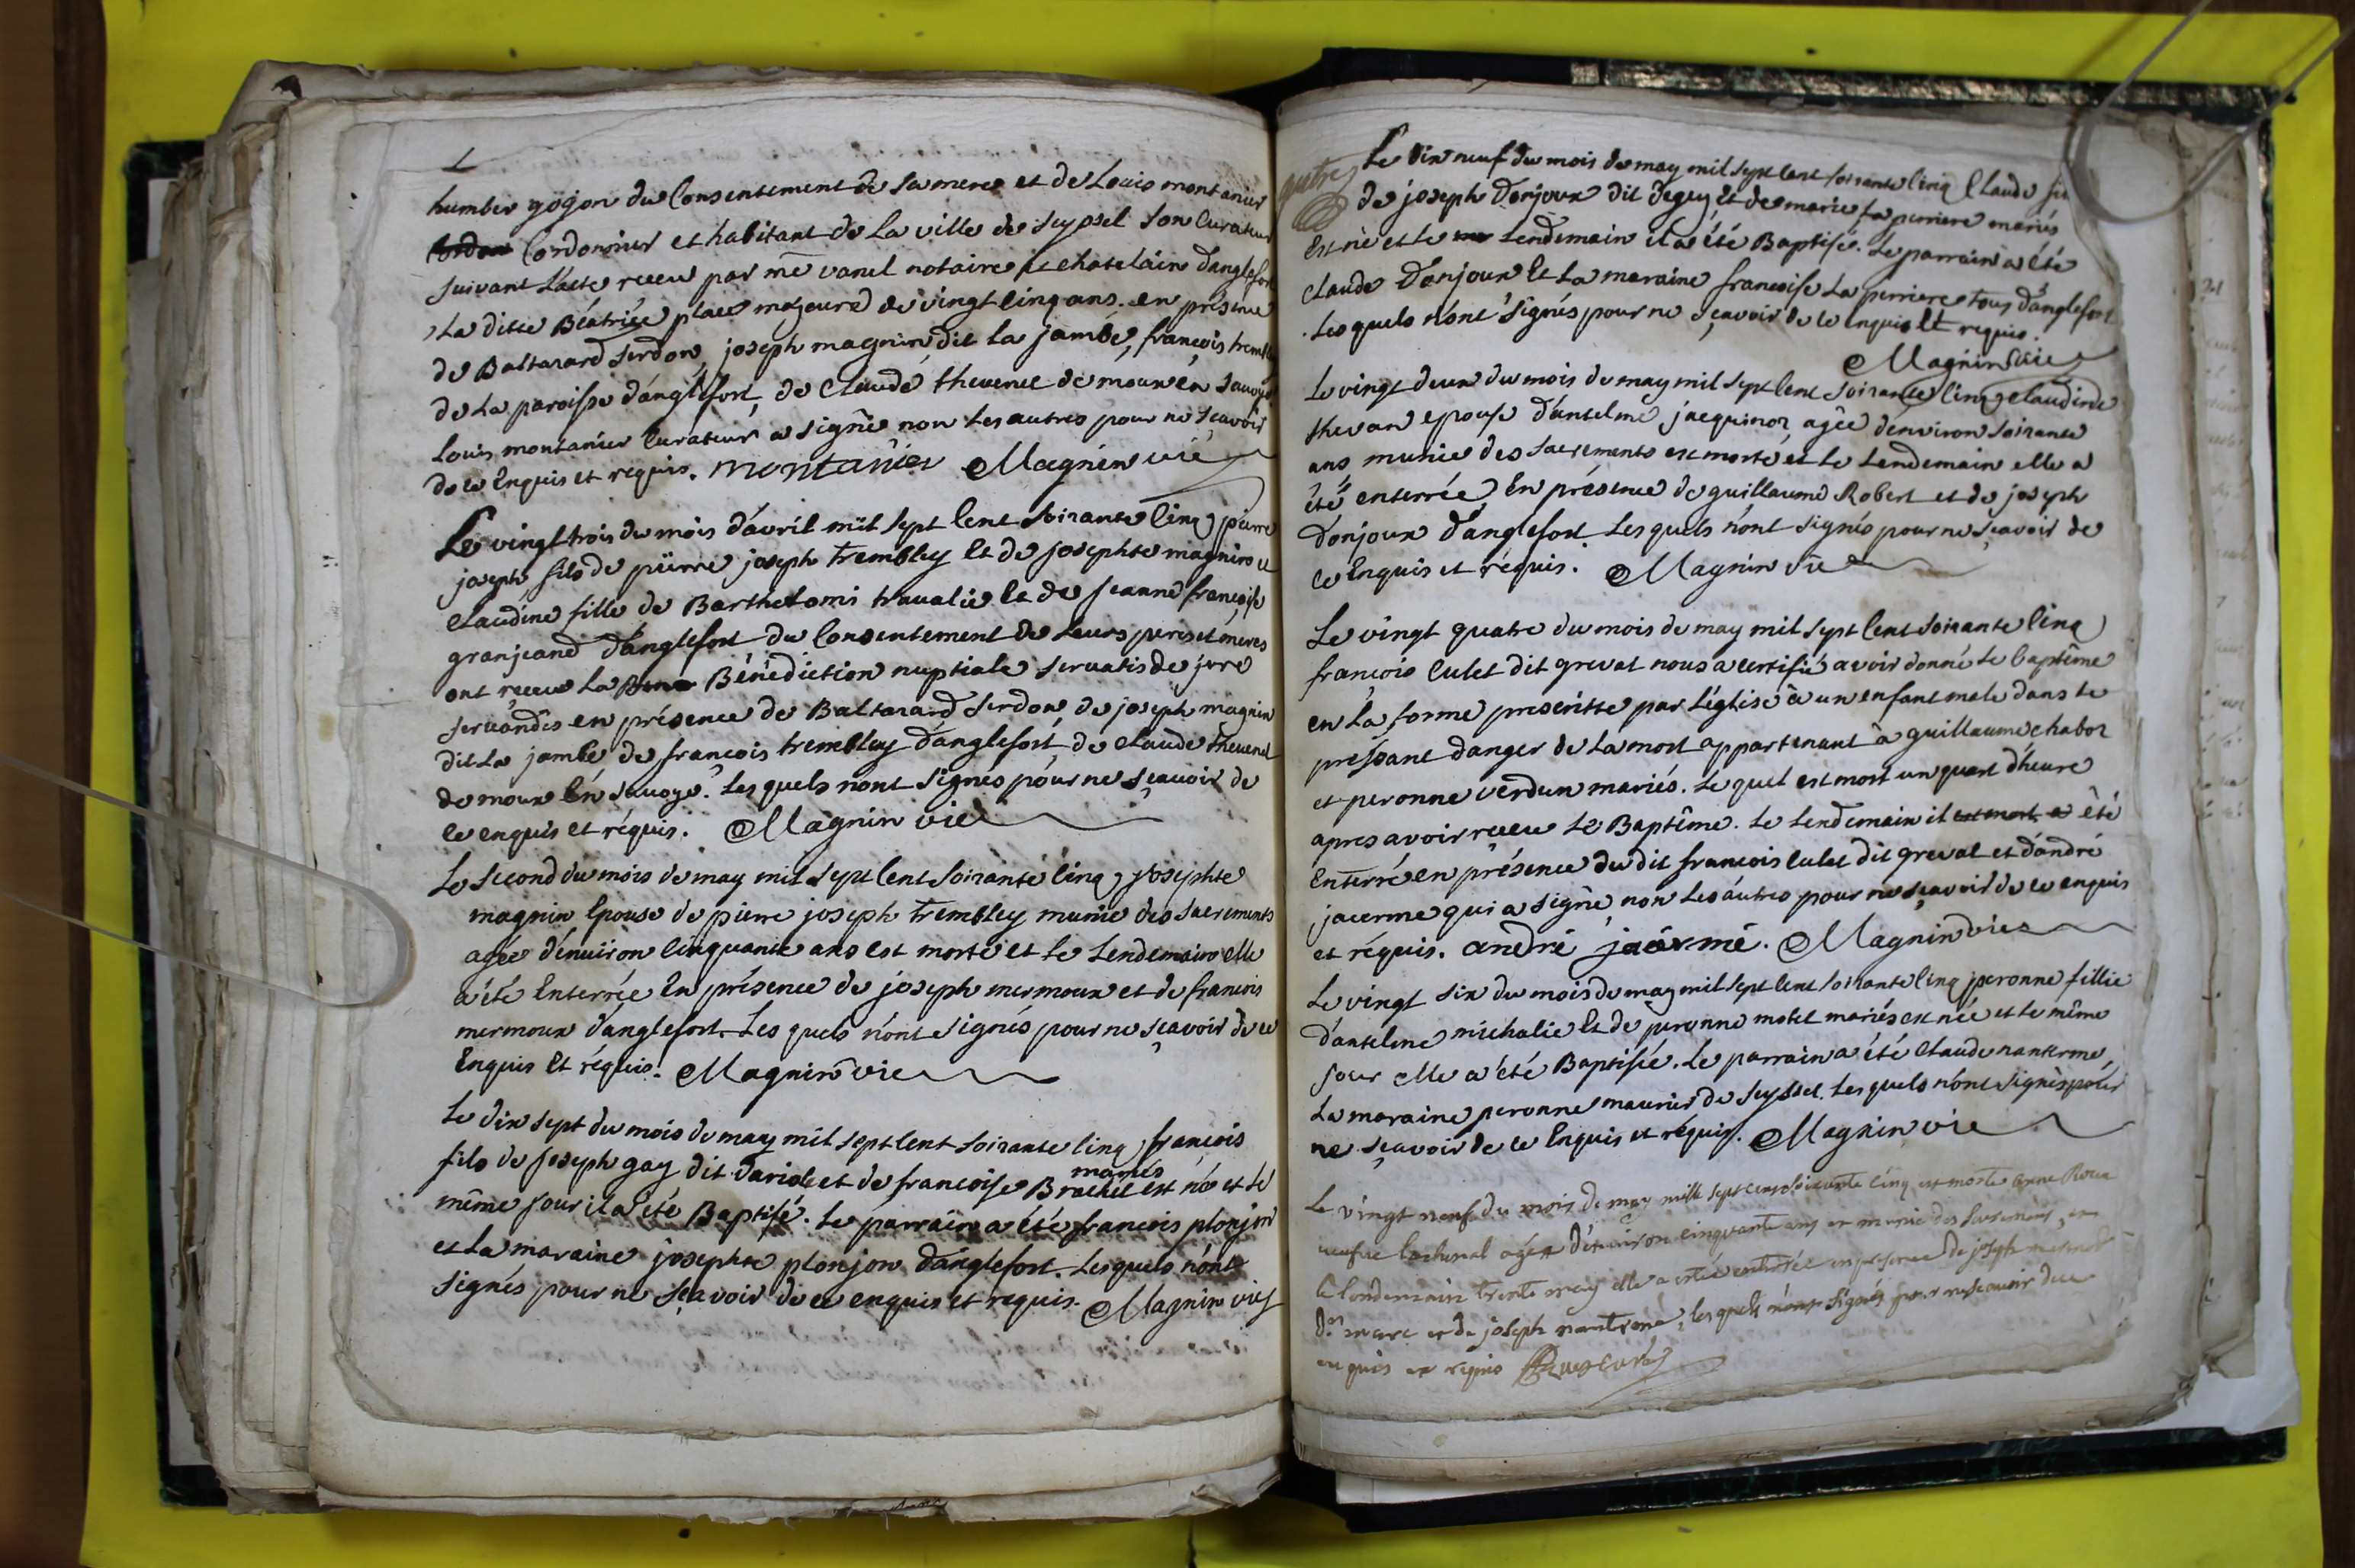 humber gojon du Consentement de sa mere et de Louis montanier
Cordonnier et habitant de la ville de seyssel son Curateur
suivant L'acte receu par me vanel notaire et chatelain d'anglefort
La ditte Béatrice place majeure de vingt cinq ans. en présence
de Baltazard serdon, joseph magnin dit la jambe, françois trembley
de la paroisse d'anglefort, de Claude thevenel de moux en Savoye
Louis montanier Curateur a signé non les autres pour ne sçavoir
de ce Enquis et requis. montanier Magnin vic
Le vingt trois du mois d'avril mil sept cent soixante cinq pierre
joseph fils de pierre joseph trembley et de josephte magnin et
Claudine fille de Barthelomi travalie et de jeanne françoise
granjeand d'anglefort du Consentement de Leurs peres et meres
ont receu La Bénédiction nuptiale servatis de jure
servandis en présence de Baltazard serdon, de joseph magnin
dit La jambe, de françois trembley d'anglefort, de Claude thevenel
de moux En Savoye. Lesquels n'ont signés pour ne sçavoir de
ce enquis et réquis. Magnin vic
Le second du mois de may mil sept cent soixante cinq josephte
magnin Epouse de pierre joseph trembley munie des sacrements
agée d'environ Cinquante ans est morte et le Lendemain elle
a été Enterrée En présence de joseph mermoux et de francois
mermoux d'anglefort. Les quels n'ont signés pour ne sçavoir de ce
Enquis Et réquis. Magnin vic
Le dix sept du mois de may mil sept cent soixante cinq françois
fils de joseph gay dit Dariole et de francoise Brachet mariés est né et le
même jour il a été Baptisé. Le parrain a été francois plonjon
et La maraine josephte plonjon d'anglefort. Lesquels n'ont
signés pour ne sçavoir de ce enquis et requis. Magnin vic
Le dix neuf du mois de may mil sept cent soixante cinq Claude fils
de joseph Donjoux dit Degey Et de marie La perriere mariés
Est né et Le Lendemain il a été Baptisé. Le parrain a été
Claude Donjoux Et La maraine francoise La perriere tous d'anglefort
Les quels n'ont signés pour ne sçavoir de ce enquis Et requis.
Magnin vic
Le vingt deux du mois de may mil sept cent soixante cinq Claudine
thevan epouse d'antelme jacquinot agée d'environ soixante
ans munie des sacrements est morte et le Lendemain elle a
été enterrée En présence de guillaume Robert et de joseph
Donjoux d'anglefort. Les quels n'ont signés pour ne sçavoir de
ce Enquis et réquis. Magnin vic
Le vingt quatre du mois de may mil sept cent soixante cinq
françois Culet dit grevat nous a certifié avoir donné le baptême
en La forme prescritte par L'église à un enfant male dans le
pressant danger de La mort appartenant à guillaume chabot
et peronne verdun mariés. Le quel est mort un quart d'heure
apres avoir receu Le Baptême. Le Lendemain il a été
Enterré en présence du dit francois Culet dit grevat et d'andré
jacerme qui a signé non Les autres pour ne sçavoir de ce enquis
et réquis. andré jacerme. Magnin vic
Le vingt six du mois de may mil sept cent soixante cinq peronne fillie
d'antelme michalie Et de peronne motel mariés est née et le même
jour elle a été Baptisée. Le parrain a été Claude nanterme
La maraine peronne maunier de Seyssel. Les quels n'ont signés pour
ne sçavoir de ce Enquis et réquis. Magnin vic
Le vingt neuf du mois de may mille sept cens soixante cinq est morte anne Roux
veufve agée d'environ cinquante ans et munie des sacremens, et
le londemain trente may elle a estée enterrée en presence de joseph
et de joseph nantrme, les quels n'ont signés pour ne scavoir de ce
enquis et requis